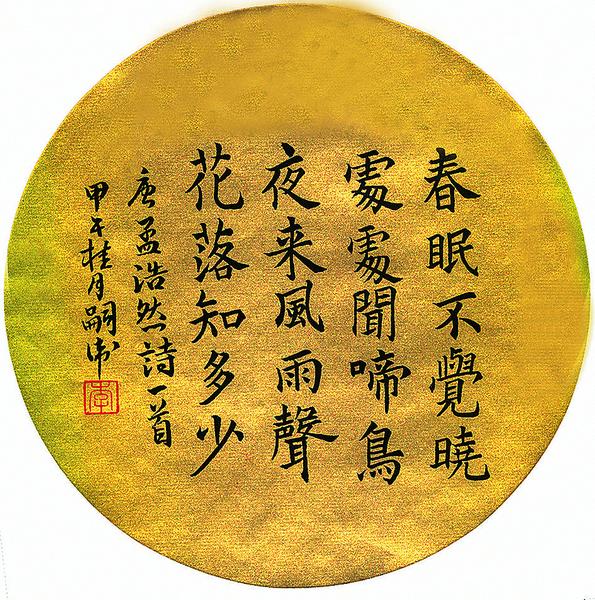 春眠不覺曉
處處聞啼鳥
夜来風雨聲
花落知多少
唐孟浩然詩一首
甲午桂月嗣
李